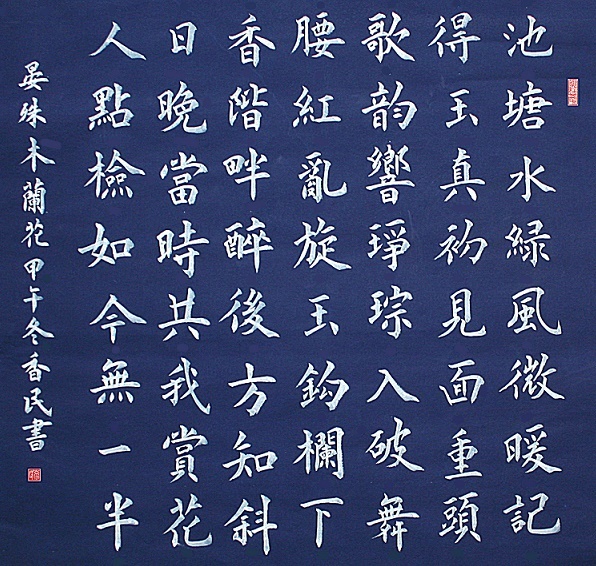 池塘水緑風微暖記
得玉真初見面重頭
歌韵響琤琮入破舞
腰紅亂旋玉鈎欄下
香階畔醉後方知斜
日晚當時共我賞花
人點檢如今無一半
晏殊木蘭花甲午冬香民書